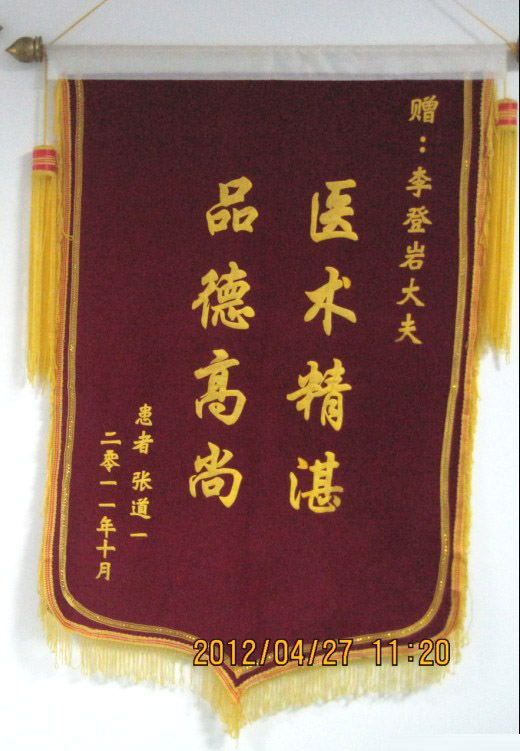 赠：李登岩大夫
医术精湛
品德高尚
患者 张道一
二零一一年十月
2012/04/27 11:20